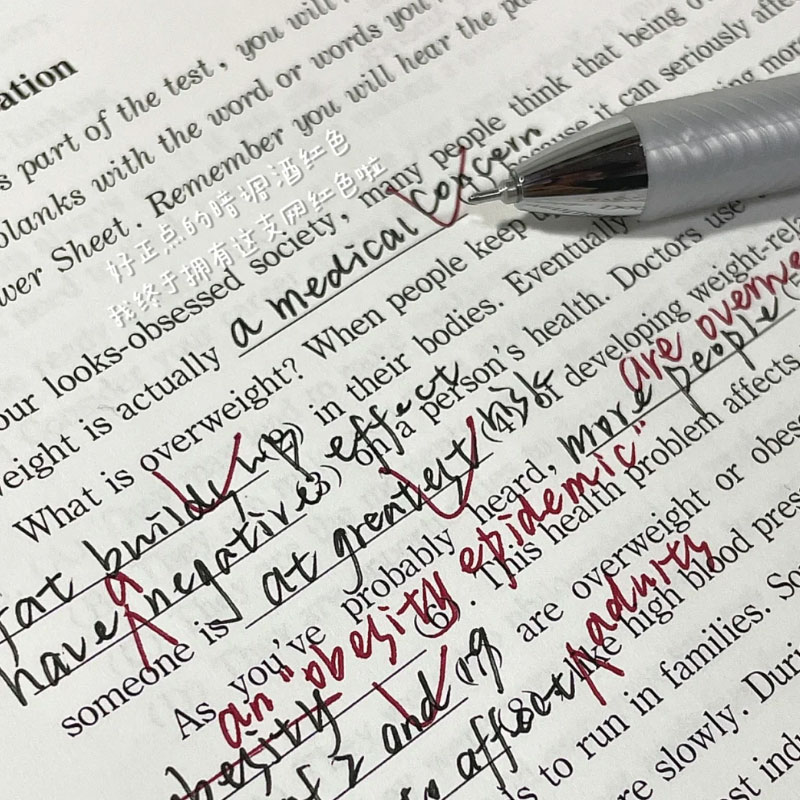 ation
s part of the test, you will
blanks with the word or words you
wer Sheet. Remember you will hear the pa
好正点的暗调酒红色
我终于拥有这支网红色啦
our looks-obsessed society, many people think that being o
weight is actually a medical concern because it can seriously affe
What is overweight? When people keep
fat builds up (2) in their bodies. Eventually
have a negative effect (3) on a person's health. Doctors use
someone is at greatest risk (4) of developing weight-rela
As you've probably heard, more people are overwe
an "obesity epidemic" (6). This health problem affects
obesity
of 2 and 19 are overweight or obes
affect like high blood pres
s to run in families. So
re slowly. Duri
st indu